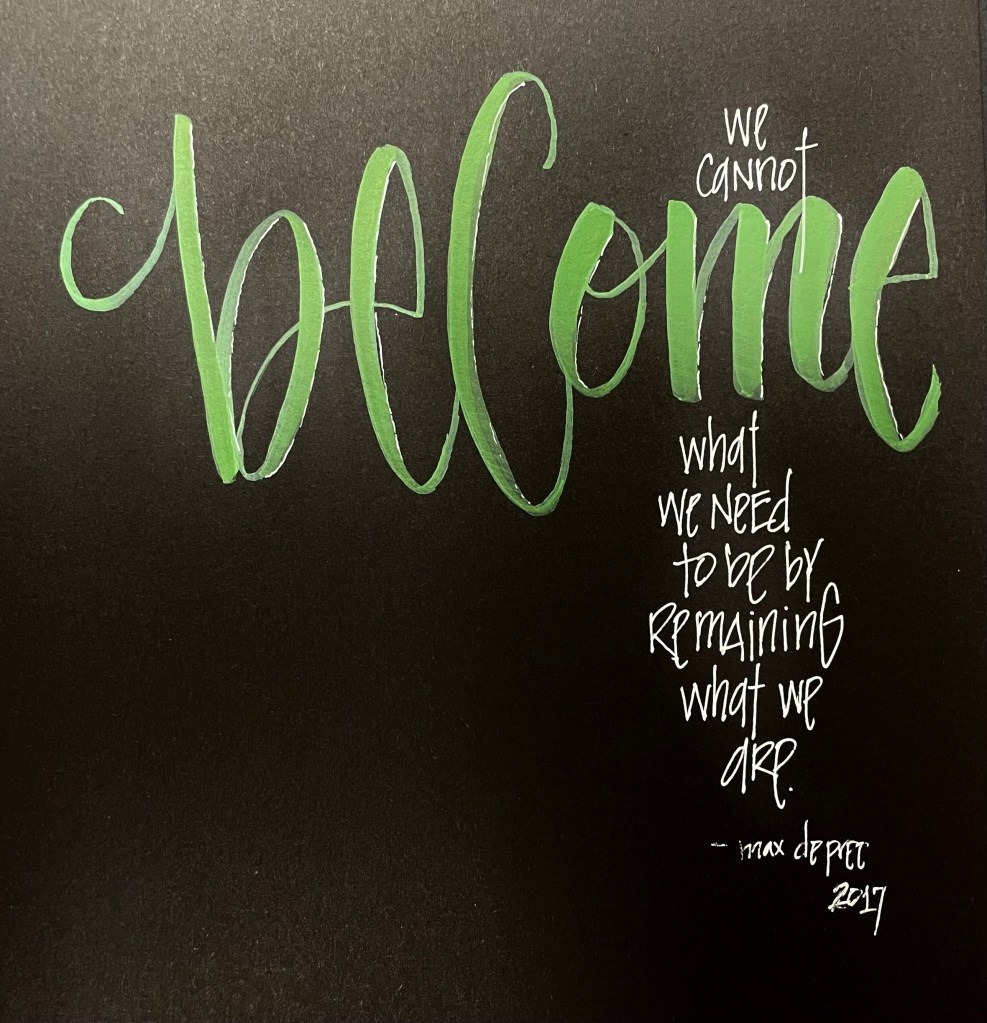 we
cannot
become
what
we need
to be by
remaining
what we
are.
- max depree
2017